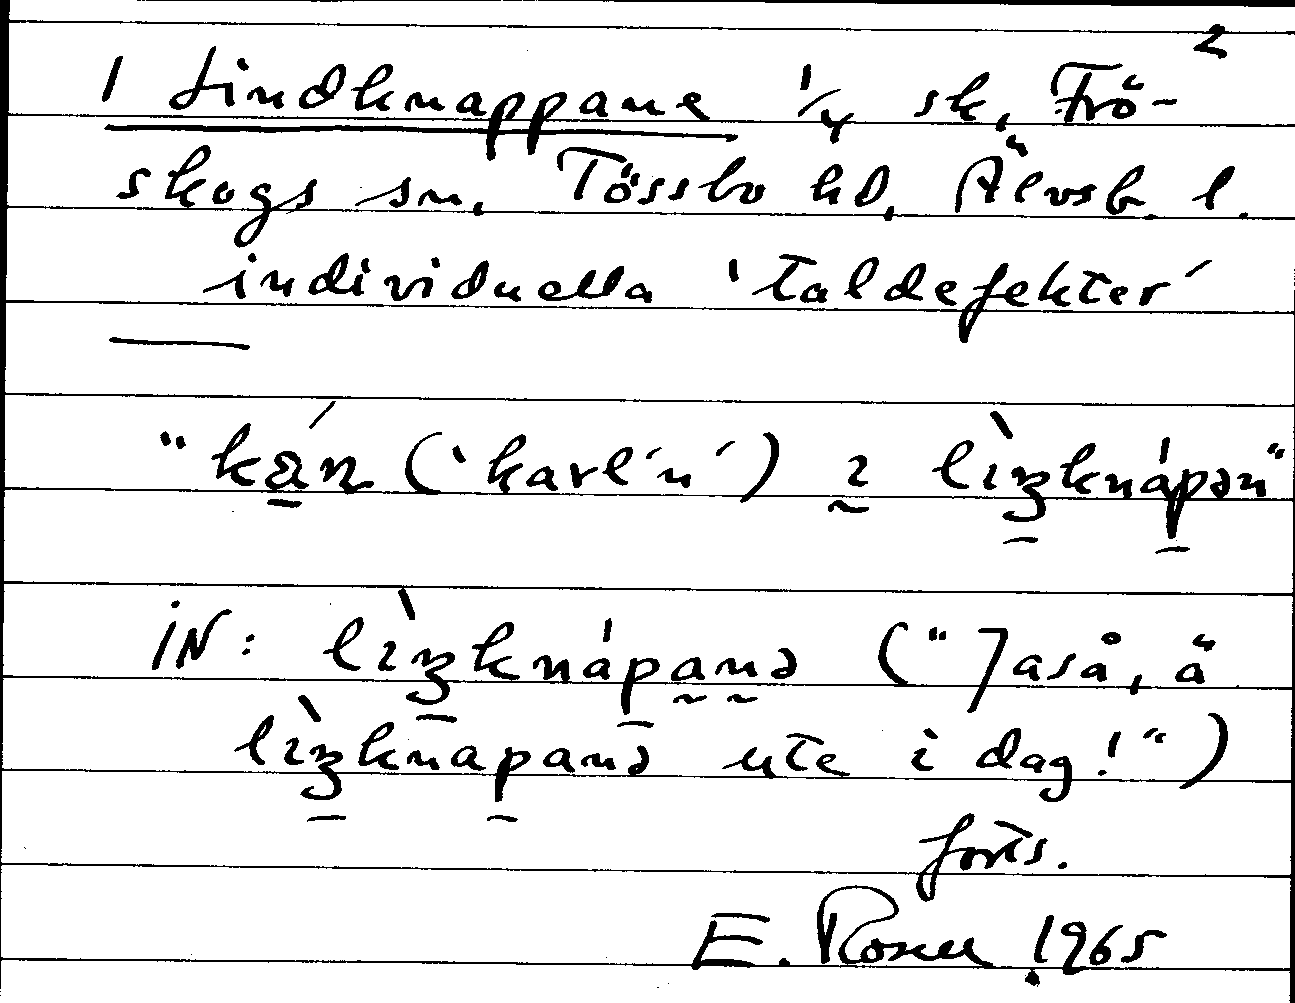 2
1 Lindknappane 1/4 sk, Frö-
skogs sn. Tössbo hd, Älvsb. l.
individuella 'taldefekter'
"kán ('karl'n') ɩ lìŋknápən"
IN: lìŋknápanə ("Jaså, ä
lìŋknapanə ute i dag!")
forts.
E. Rosell 1965